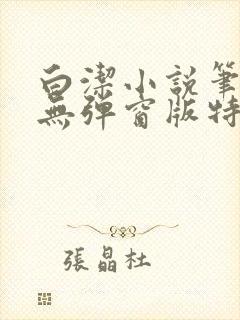 白潔小説筆
無彈窗版特
張晶杜